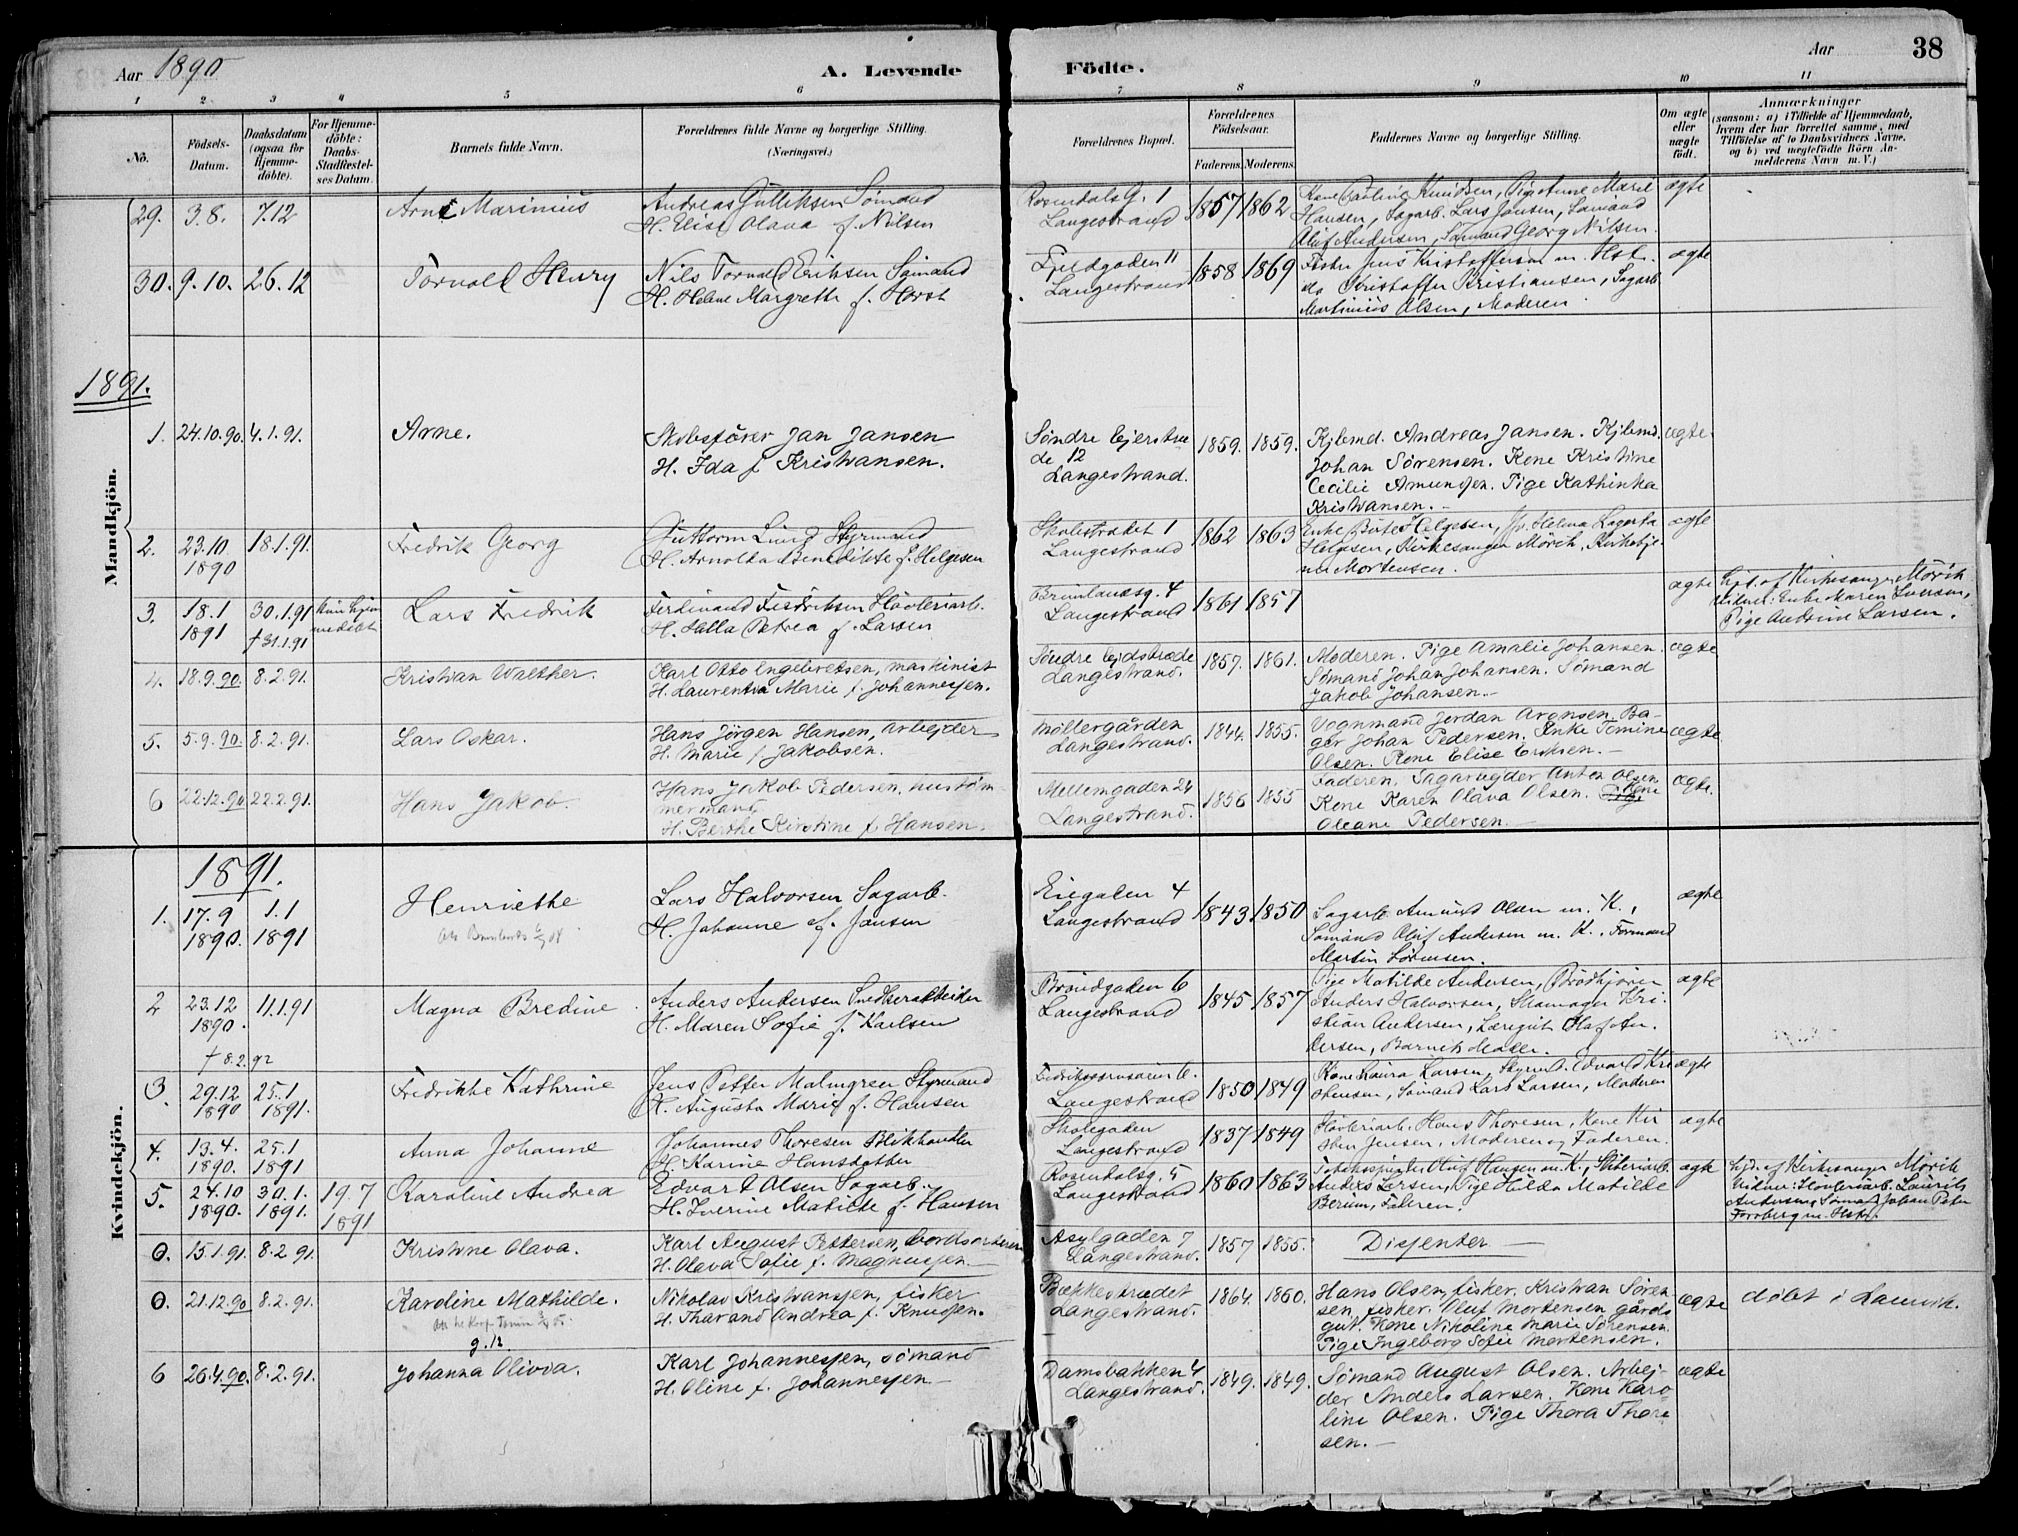 Aar 1890
A. Levende
Födte.
Aar
38
1 2 3 4 5 6 7 8 9 10 11
No.
Födsels-
Datum.
Daabsdatum
(ogsaa for
Hjemme-
döbte).
For Hjemme-
döbte:
Daabs-
Stadfæstel-
ses Datum.
Barnets fulde Navn.
Forældrenes fulde Navne og borgerlige Stilling.
(Næringsvei.)
Forældrenes Bopæl.
Forældrenes
Födselsaar.
Faderens. Moderens.
Faddernes Navne og borgerlige Stilling.
Om ægte
eller
uægte
födt.
Anmærkninger
(saasom: a) i Tilfælde af Hjemmedaab,
hvem der har forrettet samme, med
Tilföielse af to Daabsvidners Navne.
og b) ved uægtefödte Börn An-
melderens Navn m. V.)
Mandkjön.
29. 3.8. 7.12
Arne Marinius
Andreas Gulliksen Sømand
H. Elise Olava f. Nilsen
Rosendals G. 1
Langestrand
1857 1862
Kone Pauline Knudsen, Pige Anne Marie
Hansen, Sagarb. Lars Jansen, Sømand
Oluf Andersen, Sømand Georg Nilsen.
ægte
30. 9.10. 26.12
Torvald Henry
Nils Torvald Eriksen Sømand
H. Helene Margrethe f. Horst
Langestrand
1858 1869
Jens Kristoffersen m. Hst.
do Kristoffer Kristiansen, Sagarb.
Martinius Olsen, Moderen.
ægte
1891.
1. 24.10.90. 4.1.91.
Arne.
Skibsfører Jan Jansen
H. Ida f. Kristiansen.
Søndre Ejerstræ
de 12
Langestrand.
1859. 1859.
Kjøbmd. Andreas Jansen. Kjøbmd.
Johan Sørensen. Kone Kristine
Cecilie Amundsen. Pige Kathinka
Kristiansen.
ægte.
2. 23.10
1890
18.1.91.
Fredrik Georg
Guttorm Lund Styrmand
H. Arnolda Benedikte f. Helgesen
Skolestrædet 1
Langestrand
1862 1863
Enke Helgesen, Helena Lagerta
Helgesen, Kirkesanger Mörch, Kirketje-
ner Mortensen.
ægte
3. 18.1
1891
30.1.91
† 31.1.91
kun hjem
medøbt
Lars Fredrik
Ferdinand Fredriksen Høvleriarb.
H. Halla Petrea f. Larsen
Brunlandsg. 4
Langestrand
1861 1857
ægte
hjd. af Kirkesanger Mörch
Vidner: Enke Maren Iversen,
Pige Andrine Larsen.
4. 18.9.90. 8.2.91.
Kristian Walther.
Karl Otto Engebretsen, maskinist
H. Laurentia Marie f. Johannessen.
Søndre Ejdstræde
Langestrand.
1857. 1861.
Moderen. Pige Amalie Johansen.
Sømand Johan Johansen. Sømand
Jakob Johansen.
ægte
5. 5.9.90. 8.2.91.
Lars Oskar.
Hans Jörgen Hansen, arbejder
H. Marie f. Jakobsen.
Møllergården
Langestrand.
1844. 1855.
Vognmand Jordan Aronsen. Ba-
ger Johan Pedersen. Enke Tomine
Olsen. Kone Elise Eriksen.
ægte
6 22.12.90 22.2.91.
Hans Jakob.
Hans Jakob Pedersen, hustøm-
mermand
H. Berthe Kirstine f. Hansen.
Mellemgaden 24
Langestrand.
1856 1855
Faderen. Sagarbejder Anton Olsen
Kone Karen Olava Olsen. Pige Kone
Oleane Pedersen.
ægte.
Kvindekjön.
1891.
1. 17.9
1890.
1.1
1891
Henriethe
Lars Halvorsen Sagarb.
H. Johanne f. Jansen
Langestrand
1843. 1850
Sagarb. Amund Olsen m. K.,
Sømand Oluf Andersen m. K., Formand
Martin Sørensen.
ægte
2 23.12
1890.
11.1.91
† 8.2.92
Magna Bredine
Anders Andersen
H. Maren Sofie f. Karlsen
Brøndgaden 6
Langestrand
1845 1857
Pige Matilde Andersen, Brödkjörer
Anders Halvorsen, Skomager Kri-
stian Andersen, Læregut Olaf An-
dersen, Barnets Moder.
ægte
3. 29.12
1890
25.1
1891.
Fredrikke Kathrine
Jens Petter Malmgren Styrmand
H. Augusta Marie f. Hansen
Langestrand
1850 1849
Kone Laura Larsen, Styrmd. Edvard Kri
stensen, Sømand Lars Larsen, Moderen
ægte
4. 13.4.
1890.
25.1
1891
Anna Johanne
Johannes Thoresen Blikhandler
H. Karine Hansdatter
Skolegaden
Langestrand
1837 1849
Høvleriarb. Hans Thoresen, Kone Kir
sten Jensen, Moderen og Faderen.
ægte
5. 24.10
1890.
30.1.
1891.
19.7
1891
Karoline Andrea
Edvart Olsen Sagarb.
H. Iverine Matilde f. Hansen
Rosendalsg. 5
Langestrand
1860 1863
Oluf Hansen m. K.,
Anders Larsen, Pige Hilda Matilde
Berum, Faderen.
ægte
hjd. af Kirkesanger Mörch
Vidner: Høvleriarb. Laurits
Andersen, Sømand Johan Peter
Forsberg m. Hstr.
0. 15.1.91. 8.2.91.
Kristine Olava.
Karl August Pettersen, bordsorterer
H. Olava Sofie f. Magnussen.
Asylgaden 7
Langestrand.
1857 1855.
Dissenter
0. 21.12.90 8.2.91.
Karoline Mathilde.
Nikolai Kristiansen, fisker
H. Tharand Andrea f. Knudsen.
Bækkestrædet
Langestrand.
1864. 1860.
Hans Olsen, fisker. Kristian Søren
sen, fisker. Oluf Mortensen gårds
gut. Kone Nikoline Marie Sørensen.
Pige Ingeborg Sofie Mortensen.
ægte
døbt i Laurvik.
9.12
6 26.4.90. 8.2.91.
Johanna Olivia.
Karl Johannessen, sømand
H. Oline f. Johannessen
Damsbakken 4
Langestrand.
1849. 1849.
Sømand August Olsen. Arbej-
der Anders Larsen. Kone Karo
line Olsen. Pige Thora Thore
sen.
ægte